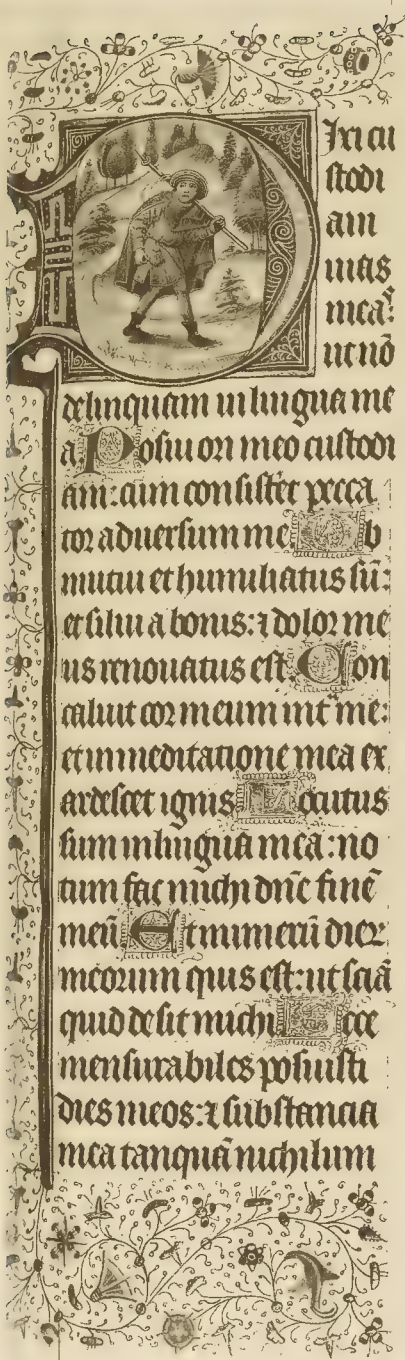 Dixi cu
stodi
am
uias
meas:
ut nō
delinquam in lingua me
a Posui ori meo custodi
am: cum consistēt pecca
tor aduersum me Ob
mutui et humiliatus sū:
et silui a bonis: ⁊ dolor me
us renouatus est. Con
caluit cor meum intᵃ me:
et in meditatione mea ex
ardescet ignis Locutus
sum in lingua mea: no
tum fac michi dn̄e finē
meū Et numerū dieꝝ
meorum quis est: ut sciā
quid desit michi Ecce
mensurabiles posuisti
dies meos: ⁊ substancia
mea tanquā nichilum